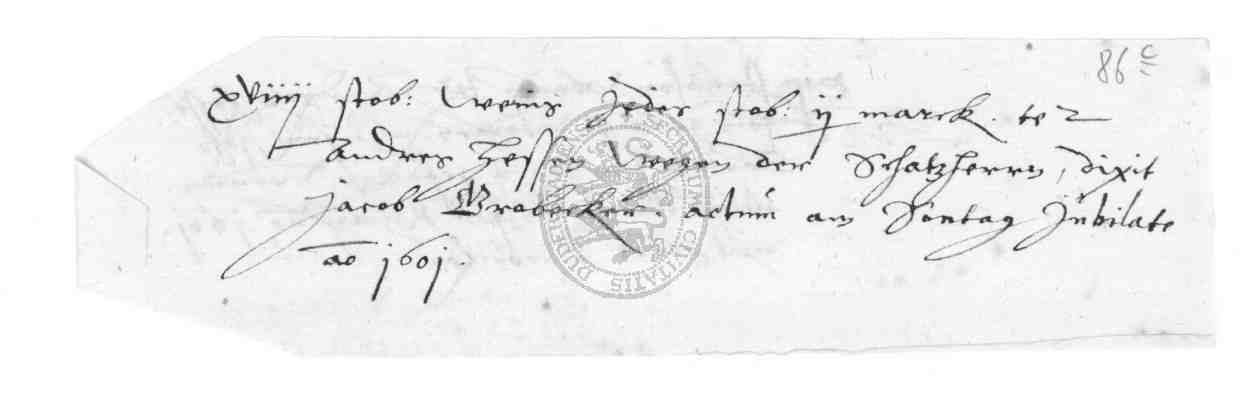 86 c
xviiij stob: Weins Jeder stob: ij marck. te
Andres Hessen Wegen der Schatzherrn, dixit
Jacob Grobecker. actum am Sontag Jubilate
ao 1601.
SECRETUM CIVITATIS DUDERSTADENSIS